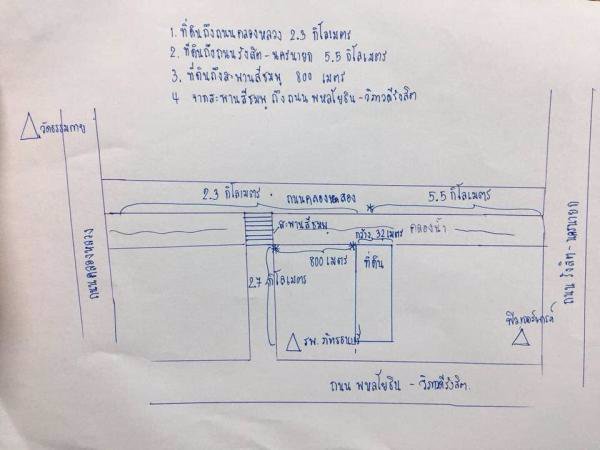 1. ที่ดินถึงถนนคลองหลวง 2.3 กิโลเมตร
2. ที่ดินถึงถนนรังสิต-นครนายก 5.5 กิโลเมตร
3. ที่ดินถึงสะพานสีชมพู 800 เมตร
4 จากสะพานสีชมพู ถึง ถนน พหลโยธิน - วิภาวดีรังสิต
วัดธรรมกาย
2.3 กิโลเมตร
ถนนคลองสอง
5.5 กิโลเมตร
สะพานสีชมพู
กว้าง 32 เมตร
คลองน้ำ
800 เมตร
ที่ดิน
2.7 กิโลเมตร
ถนนคลองหลวง
ถนน รังสิต - นครนายก
รพ. ภัทรธนบุรี
ถนน พหลโยธิน - วิภาวดีรังสิต